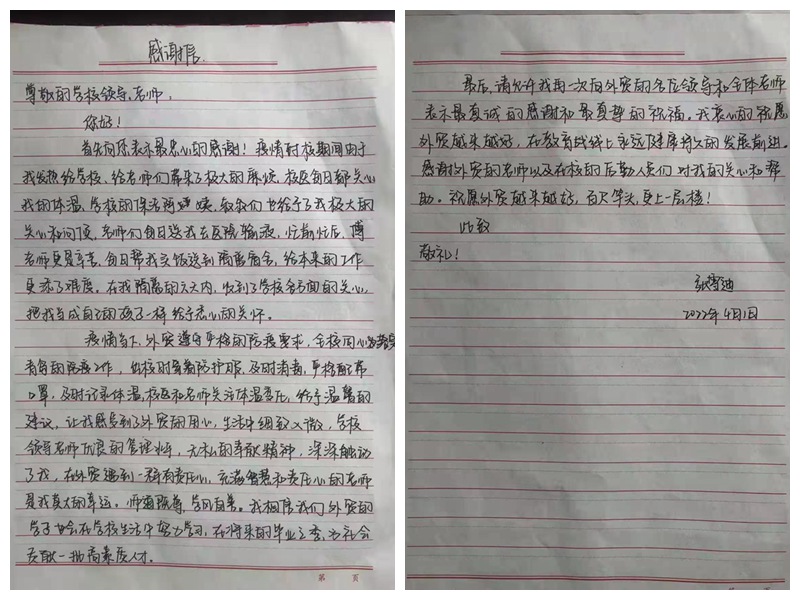 感谢信.
尊敬的学校领导、老师:
你好!
首先向您表示最衷心的感谢!疫情封校期间由于
我发热给学校、给老师们带来了极大的麻烦,校区每日都关心
我的体温,学校的保洁阿姨姨,叔叔们也给予了我极大的
关心和问候,老师们每日送我去医院输液,忙前忙后,傅
老师更是辛苦,每日帮我买饭送到隔离宿舍,给本来的工作
更添了难度。在我隔离的六天内,收到了学校各方面的关心,
把我当成自己的孩子一样给予爱心的关怀。
疫情当下,外贸遵守严格的防疫要求,全校同心
有条的防疫工作,出校时穿着防护服,及时消毒,严格配带
口罩,及时记录体温,校区和老师关注体温变化,给予温馨的
建议,让我感受到了外贸的用心,生活中细致入微,学校
领导老师优良的管理水平,无私的奉献精神,深深触动
了我,在外贸遇到一群有责任心,充满智慧和责任心的老师
是我莫大的幸运。师道既尊,学风自善。我相信我们外贸的
学子也会在学校生活中努力学习,在将来的毕业之季,为社会
贡献一批高素质人才。
第 页
最后,请允许我再一次向外贸的各位领导和全体老师
表示最真诚的感谢和最真挚的祝福。我衷心的祝愿
外贸越来越好,在教育战线上永远健康持久的发展前进。
感谢外贸的老师以及在校的后勤人员们对我的关心和帮
助。祝愿外贸越来越好,百尺竿头,更上一层楼!
此致
敬礼!
2022年4月1日
第 页